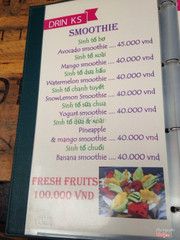 DRIN KS
SMOOTHIE
Sinh tố bơ
Avocado smoothie .... 45.000 vnd
Sinh tố xoài
Mango smoothie .... 40.000 vnd
Sinh tố dưa hấu
Watermelon smoothie .... 40.000 vnd
Sinh tố chanh tuyết
SnowLemon Smoothie .... 40.000 vnd
Sinh tố sữa chua
Yogurt smoothie .... 40.000 vnd
Sinh tố dứa & xoài
Pineapple
& mango smoothie .... 40.000 vnd
Sinh tố chuối
Banana smoothie .... 40.000 vnd
FRESH FRUITS
100.000 VND